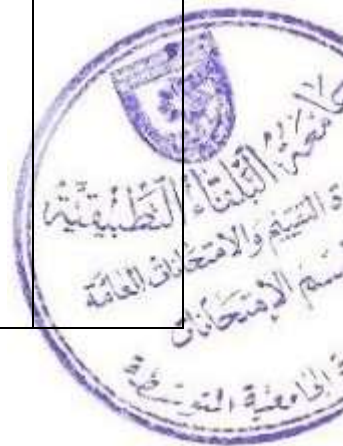 جامعة البلقاء التطبيقية
التقييم والامتحانات العامة
قسم الامتحانات
الجامعية المتوسطة